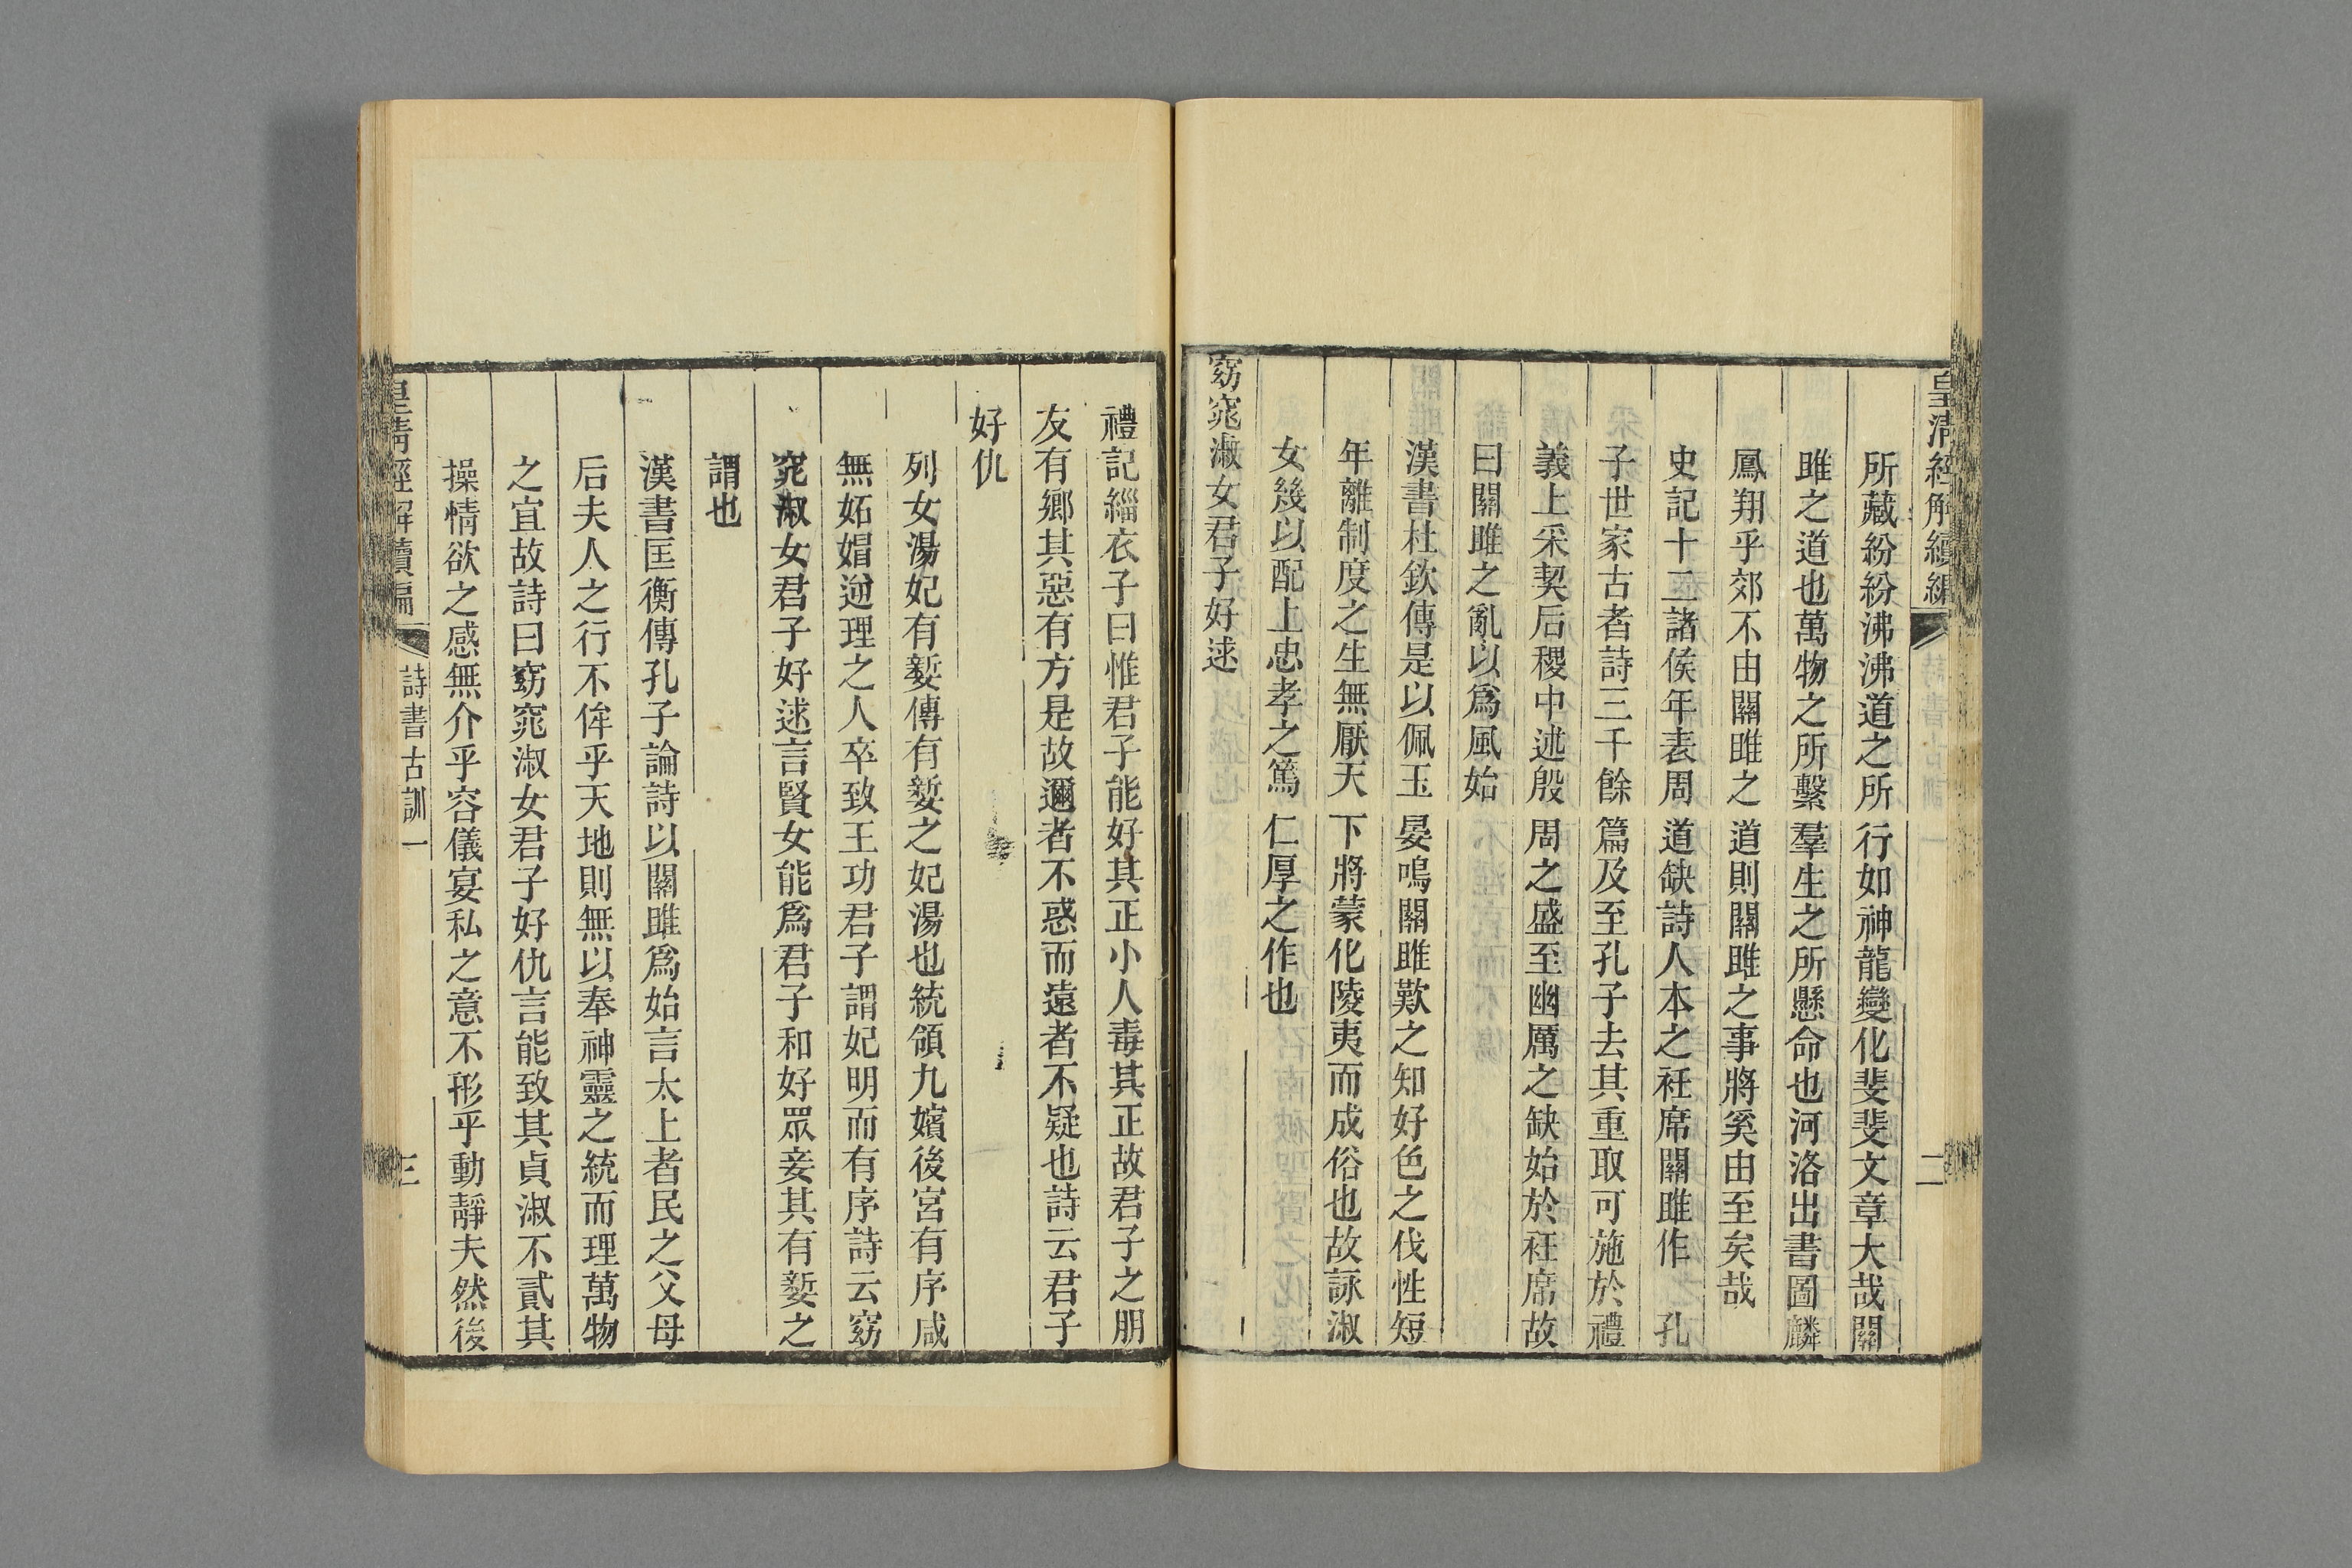 皇清經解續編
二
所藏紛紛沸沸道之所行如神龍變化斐斐文章大哉關
雎之道也萬物之所繫羣生之所懸命也河洛出書圖麟
鳳翔乎郊不由關雎之道則關雎之事將奚由至矣哉
史記十二諸侯年表周道缺詩人本之衽席關雎作 孔
子世家古者詩三千餘篇及至孔子去其重取可施於禮
義上采契后稷中述殷周之盛至幽厲之缺始於衽席故
曰關雎之亂以爲風始
漢書杜欽傳是以佩玉晏鳴關雎歎之知好色之伐性短
年離制度之生無厭天下將蒙化陵夷而成俗也故詠淑
女幾以配上忠孝之篤仁厚之作也
窈窕淑女君子好逑
禮記緇衣子曰惟君子能好其正小人毒其正故君子之朋
友有鄉其惡有方是故邇者不惑而遠者不疑也詩云君子
好仇
列女湯妃有㜪傳有㜪之妃湯也統領九嬪後宮有序咸
無妬媢逆理之人卒致王功君子謂妃明而有序詩云窈
窕淑女君子好逑言賢女能爲君子和好眾妾其有㜪之
謂也
漢書匡衡傳孔子論詩以關雎爲始言太上者民之父母
后夫人之行不侔乎天地則無以奉神靈之統而理萬物
之宜故詩曰窈窕淑女君子好仇言能致其貞淑不貳其
操情欲之感無介乎容儀宴私之意不形乎動靜夫然後
皇清經解續編
詩書古訓一
三